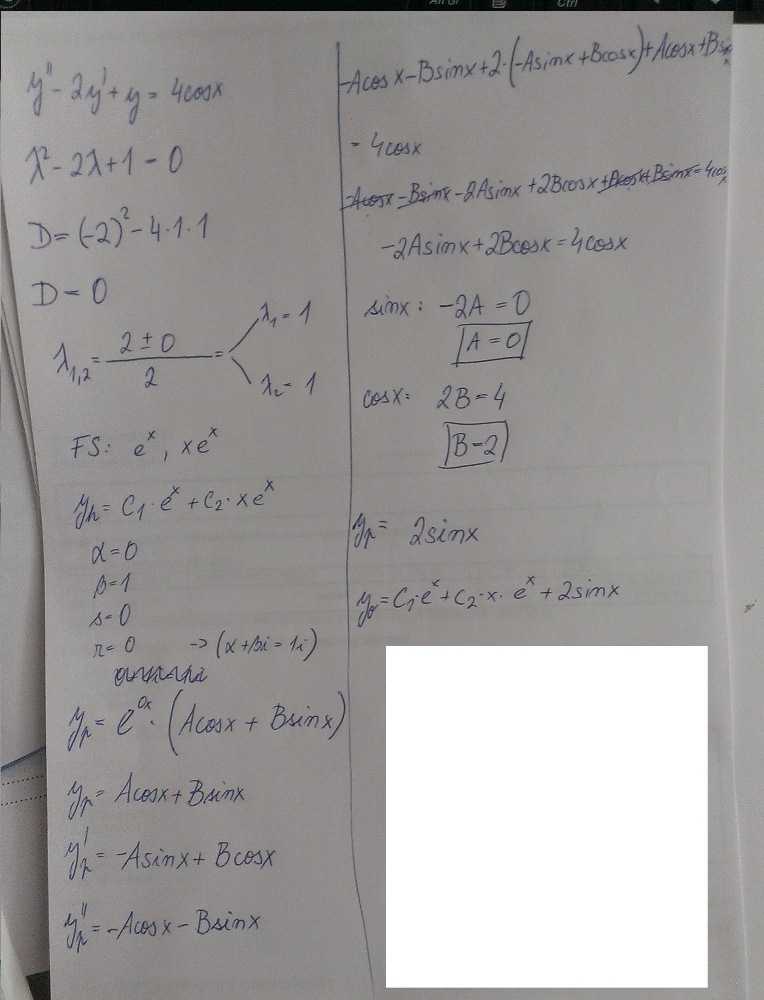 y'' - 2y' + y = 4cosx
λ² - 2λ + 1 = 0
D = (-2)² - 4·1·1
D = 0
λ₁,₂ = (2 ± 0)/2 = λ₁ = 1
λ₂ = 1
FS: eˣ, xeˣ
yₕ = C₁·eˣ + C₂·xeˣ
α = 0
β = 1
s = 0
r = 0 -> (α + βi = 1i)
yₚ = e⁰ˣ·(Acosx + Bsinx)
yₚ = Acosx + Bsinx
yₚ' = -Asinx + Bcosx
yₚ'' = -Acosx - Bsinx
-Acosx - Bsinx + 2·(-Asinx + Bcosx) + Acosx + Bsinx
= 4cosx
-Acosx - Bsinx - 2Asinx + 2Bcosx + Acosx + Bsinx = 4cosx
-2Asinx + 2Bcosx = 4cosx
sinx: -2A = 0
A = 0
cosx: 2B = 4
B = 2
yₚ = 2sinx
yₒ = C₁·eˣ + C₂·x·eˣ + 2sinx